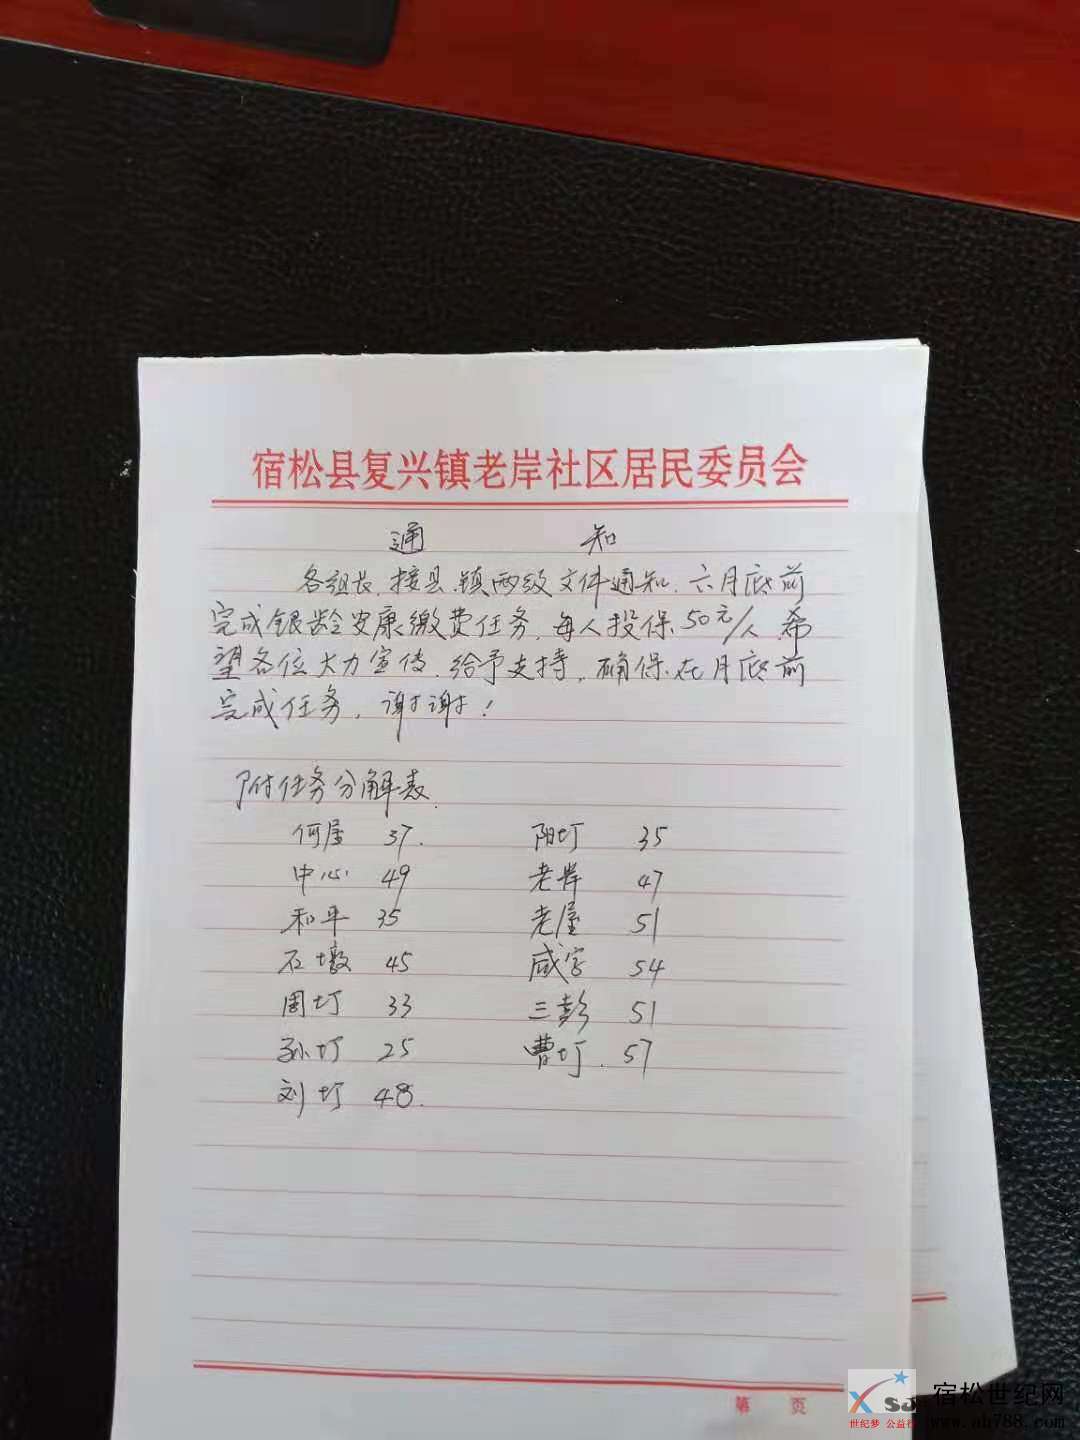 宿松县复兴镇老岸社区居民委员会
通 知
各组长,接县.镇两级文件通知.六月底前
完成银龄安康缴费任务,每人投保50元/人 希
望各位大力宣传.给予支持,确保在月底前
完成任务,谢谢!
附任务分解表.
何屋 37. 阳圩 35
中心 49 老岸 47
和平 35 老屋 51
石墩 45 咸字 54
周圩 33 三彭 51
孙圩 25 曹圩. 57
刘圩 48.
第 页
宿松世纪网
世纪梦 公益行
www.ah788.com